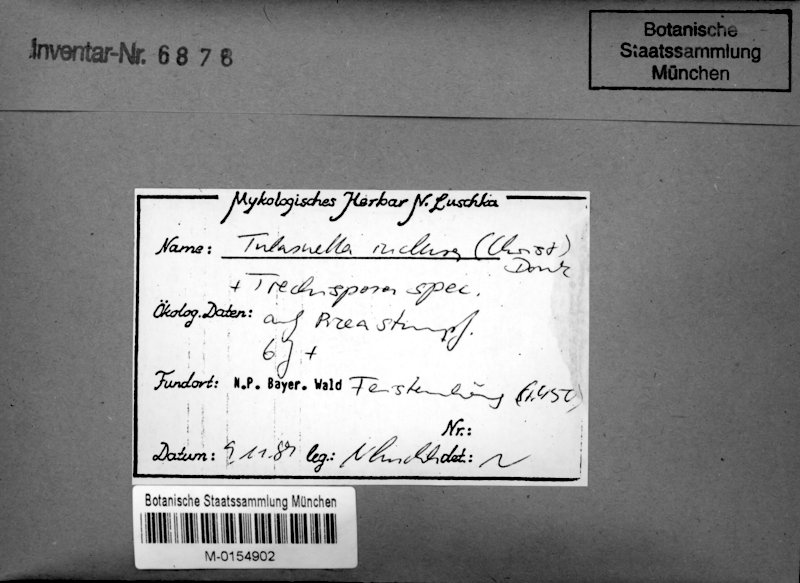 Inventar-Nr. 6878
Botanische
Staatssammlung
München
Mykologisches Herbar N. Luschka
Name: Tulasnella inclusa (Christ)
Donk
+ Trechispora spec.
Ökolog. Daten: auf Picea stumpf.
6 j +
Fundort: N.P. Bayer. Wald
Nr.:
Datum: 9.11.89 leg.: N Luschka det.: N
Botanische Staatssammlung München
M-0154902